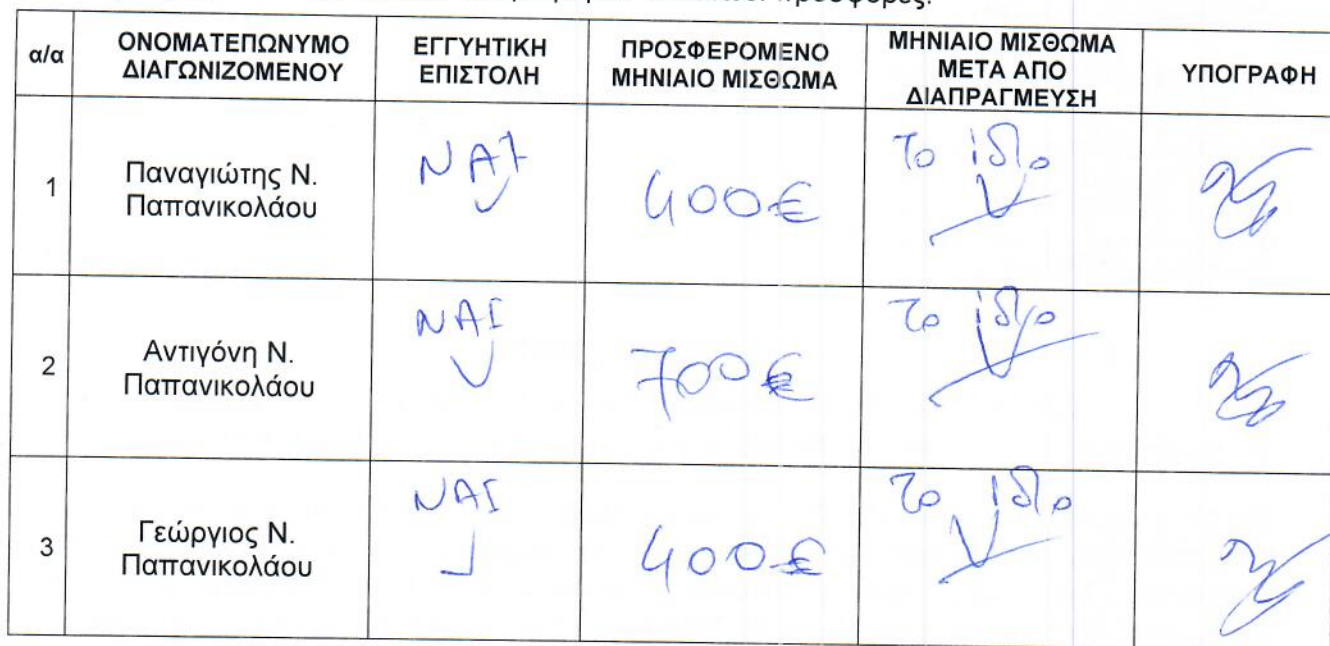 προσφορές.
α/α ΟΝΟΜΑΤΕΠΩΝΥΜΟ ΔΙΑΓΩΝΙΖΟΜΕΝΟΥ ΕΓΓΥΗΤΙΚΗ ΕΠΙΣΤΟΛΗ ΠΡΟΣΦΕΡΟΜΕΝΟ ΜΗΝΙΑΙΟ ΜΙΣΘΩΜΑ ΜΗΝΙΑΙΟ ΜΙΣΘΩΜΑ ΜΕΤΑ ΑΠΟ ΔΙΑΠΡΑΓΜΕΥΣΗ ΥΠΟΓΡΑΦΗ
1 Παναγιώτης Ν. Παπανικολάου ΝΑΙ 400€ Το ίδιο
2 Αντιγόνη Ν. Παπανικολάου ΝΑΙ 700€ Το ίδιο
3 Γεώργιος Ν. Παπανικολάου ΝΑΙ 400€ Το ίδιο